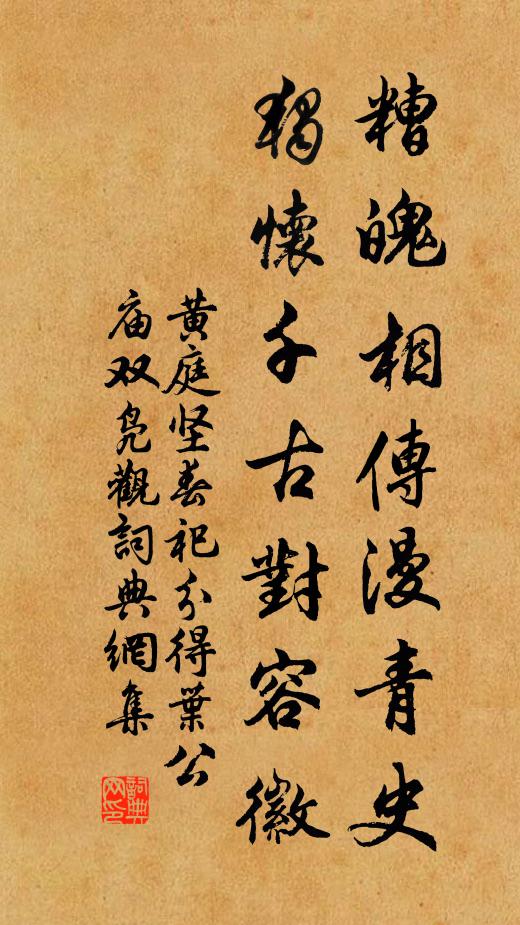 糟魄相傳漫青史
獨懷千古對容徽
黄庭坚春祀分得葉公
庙双凫觀詞典網集
詞典网印